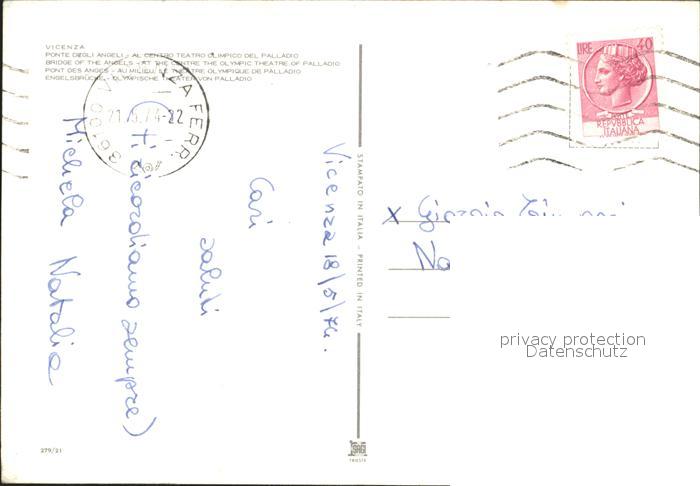 VICENZA
PONTE DEGLI ANGELI - AL CENTRO TEATRO OLIMPICO DEL PALLADIO
BRIDGE OF THE ANGELS - AT THE CENTRE THE OLYMPIC THEATRE OF PALLADIO
PONT DES ANGES - AU MILIEU LE THEATRE OLYMPIQUE DE PALLADIO
ENGELSBRÜCKE - OLYMPISCHE THEATER VON PALLADIO
36100 FERR.
21.5.74-22
Vicenza 18/5/74.
Cari
saluti
(ti ricordiamo sempre)
Michela Natalia
STAMPATO IN ITALIA - PRINTED IN ITALY
LIRE 40
REPVBBLICA
ITALIANA
x
privacy protection
Datenschutz
279/21
TRIESTE